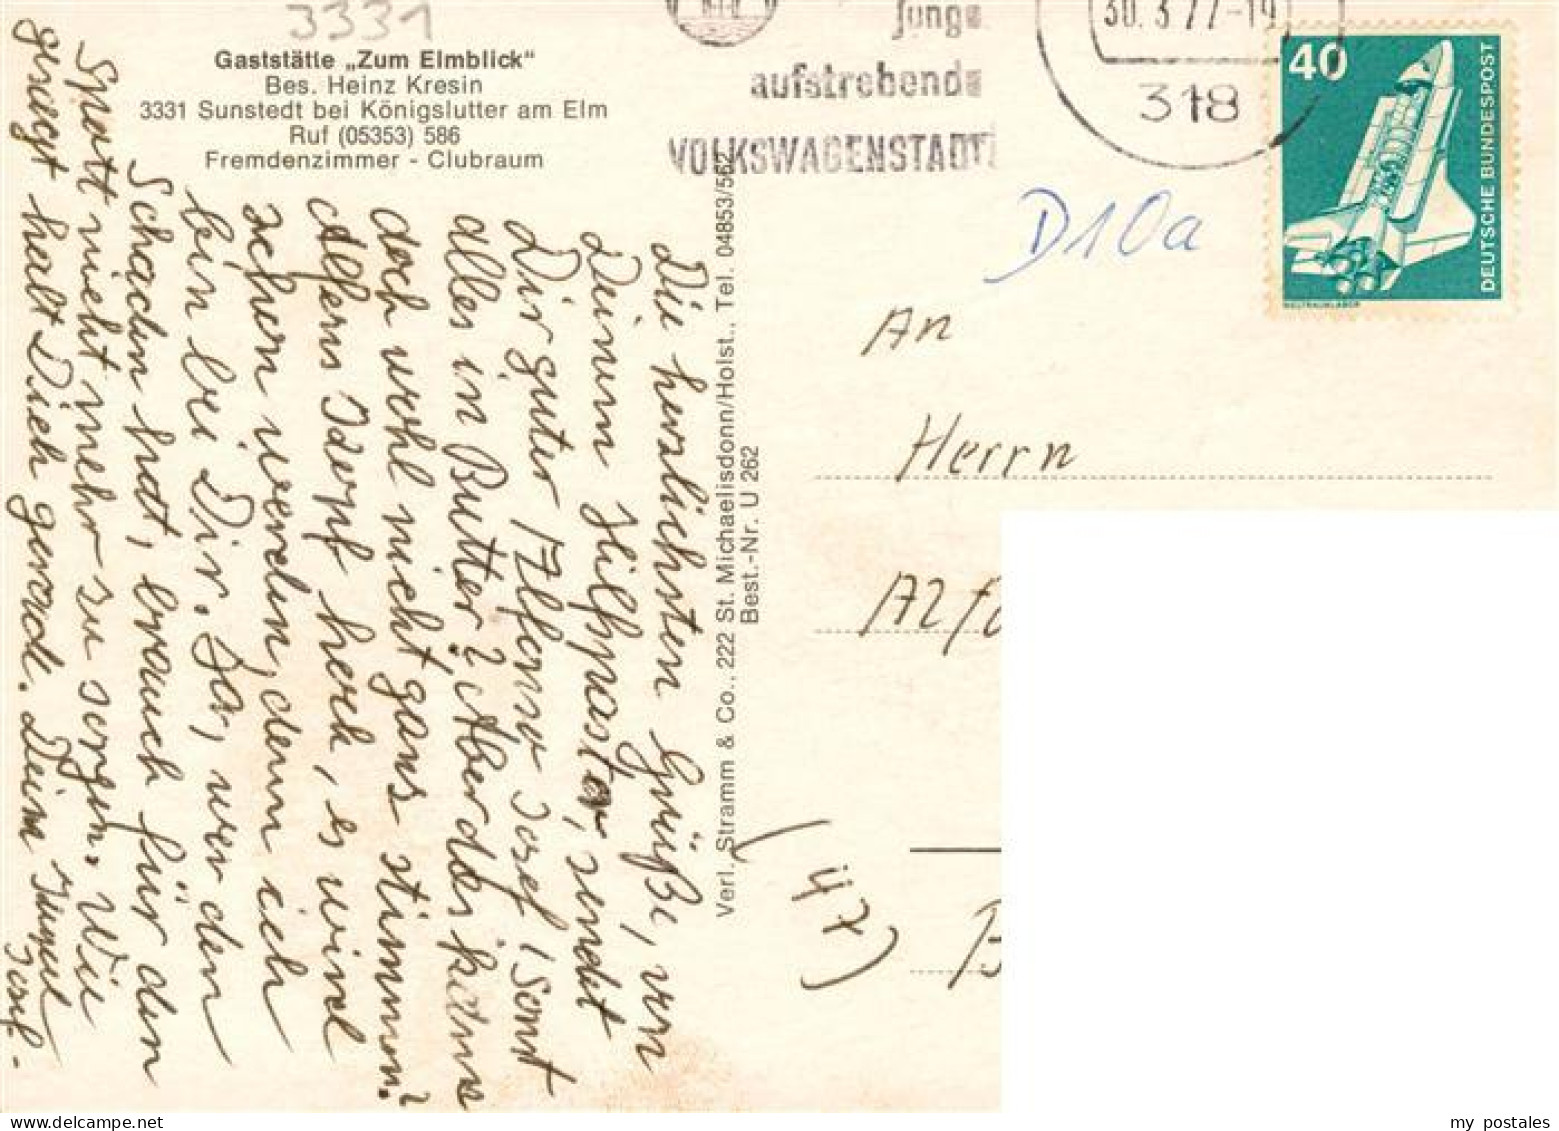 3331
Gaststätte „Zum Elmblick“
Bes. Heinz Kresin
3331 Sunstedt bei Königslutter am Elm
Ruf (05353) 586
Fremdenzimmer - Clubraum
Die herzlichsten Grüße, von
Deinem Hilfspastor, sendet
Dir guter Alfons Josef! Sonst
alles in Butter? Aber das kann
doch wohl nicht ganz stimmen?
Alfens hoch, es wird
schon werden, denn ich
bin bei Dir. Ja, wer den
Schaden hat, brauch für den
Spott nicht mehr zu sorgen. Wie
gesagt halt Dich gerade. Dein
Josef.-
Verl. Stramm & Co., 222 St. Michaelisdonn/Holst., Tel. 04853/562
Best.-Nr. U 262
junge
aufstrebende
VOLKSWAGENSTADT
30.3.77-19
318
40
DEUTSCHE BUNDESPOST
WELTRAUMLABOR
D10a
An
Herrn
Alfo
(47)
B
my_postales